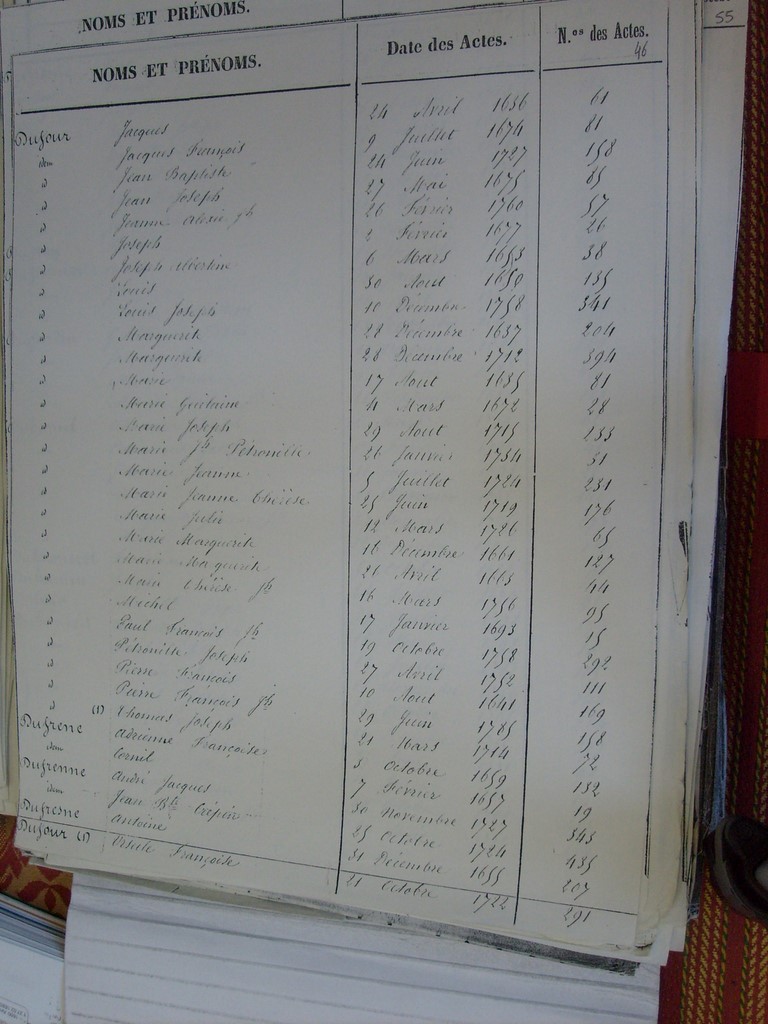 NOMS ET PRÉNOMS.
55
NOMS ET PRÉNOMS. Date des Actes. N.os des Actes.
46
Dufour Jacques 24 Avril 1636 61
idem Jacques François 9 Juillet 1674 81
d Jean Baptiste 24 Juin 1727 158
d Jean Joseph 27 Mai 1675 85
d Jeanne Alexie jh 26 Février 1760 57
d Joseph 2 Février 1677 26
d Joseph Albertine 6 Mars 1653 38
d Louis 30 Aout 1650 135
d Louis Joseph 10 Décembre 1758 341
d Marguerite 28 Décembre 1637 204
d Marguerite 28 Décembre 1712 394
d Marie 17 Aout 1635 81
d Marie Guilaine 4 Mars 1672 28
d Marie Joseph 29 Aout 1715 233
d Marie Jh Pétronille 26 Janvier 1734 31
d Marie Jeanne 5 Juillet 1724 231
d Marie Jeanne Thérèse 25 Juin 1719 176
d Marie Julie 12 Mars 1726 65
d Marie Marguerite 16 Décembre 1661 127
d Marie Marguerite 26 Avril 1663 44
d Marie Thérèse jh 16 Mars 1756 95
d Michel 17 Janvier 1693 15
d Paul François jh 19 Octobre 1758 292
d Pétronille Joseph 27 Avril 1752 111
d Pierre François 10 Aout 1641 169
d Pierre François jh 29 Juin 1785 158
d (1) Thomas Joseph 21 Mars 1714 72
Dufrene Adrienne Françoise 3 Octobre 1659 132
idem Cornil 7 Février 1657 19
Dufrenne André Jacques 30 Novembre 1727 343
idem Jean Bte Crépin 25 Octobre 1724 435
Dufresne Antoine 31 Décembre 1655 207
Dufour (1) Ursule Françoise 21 Octobre 1722 291